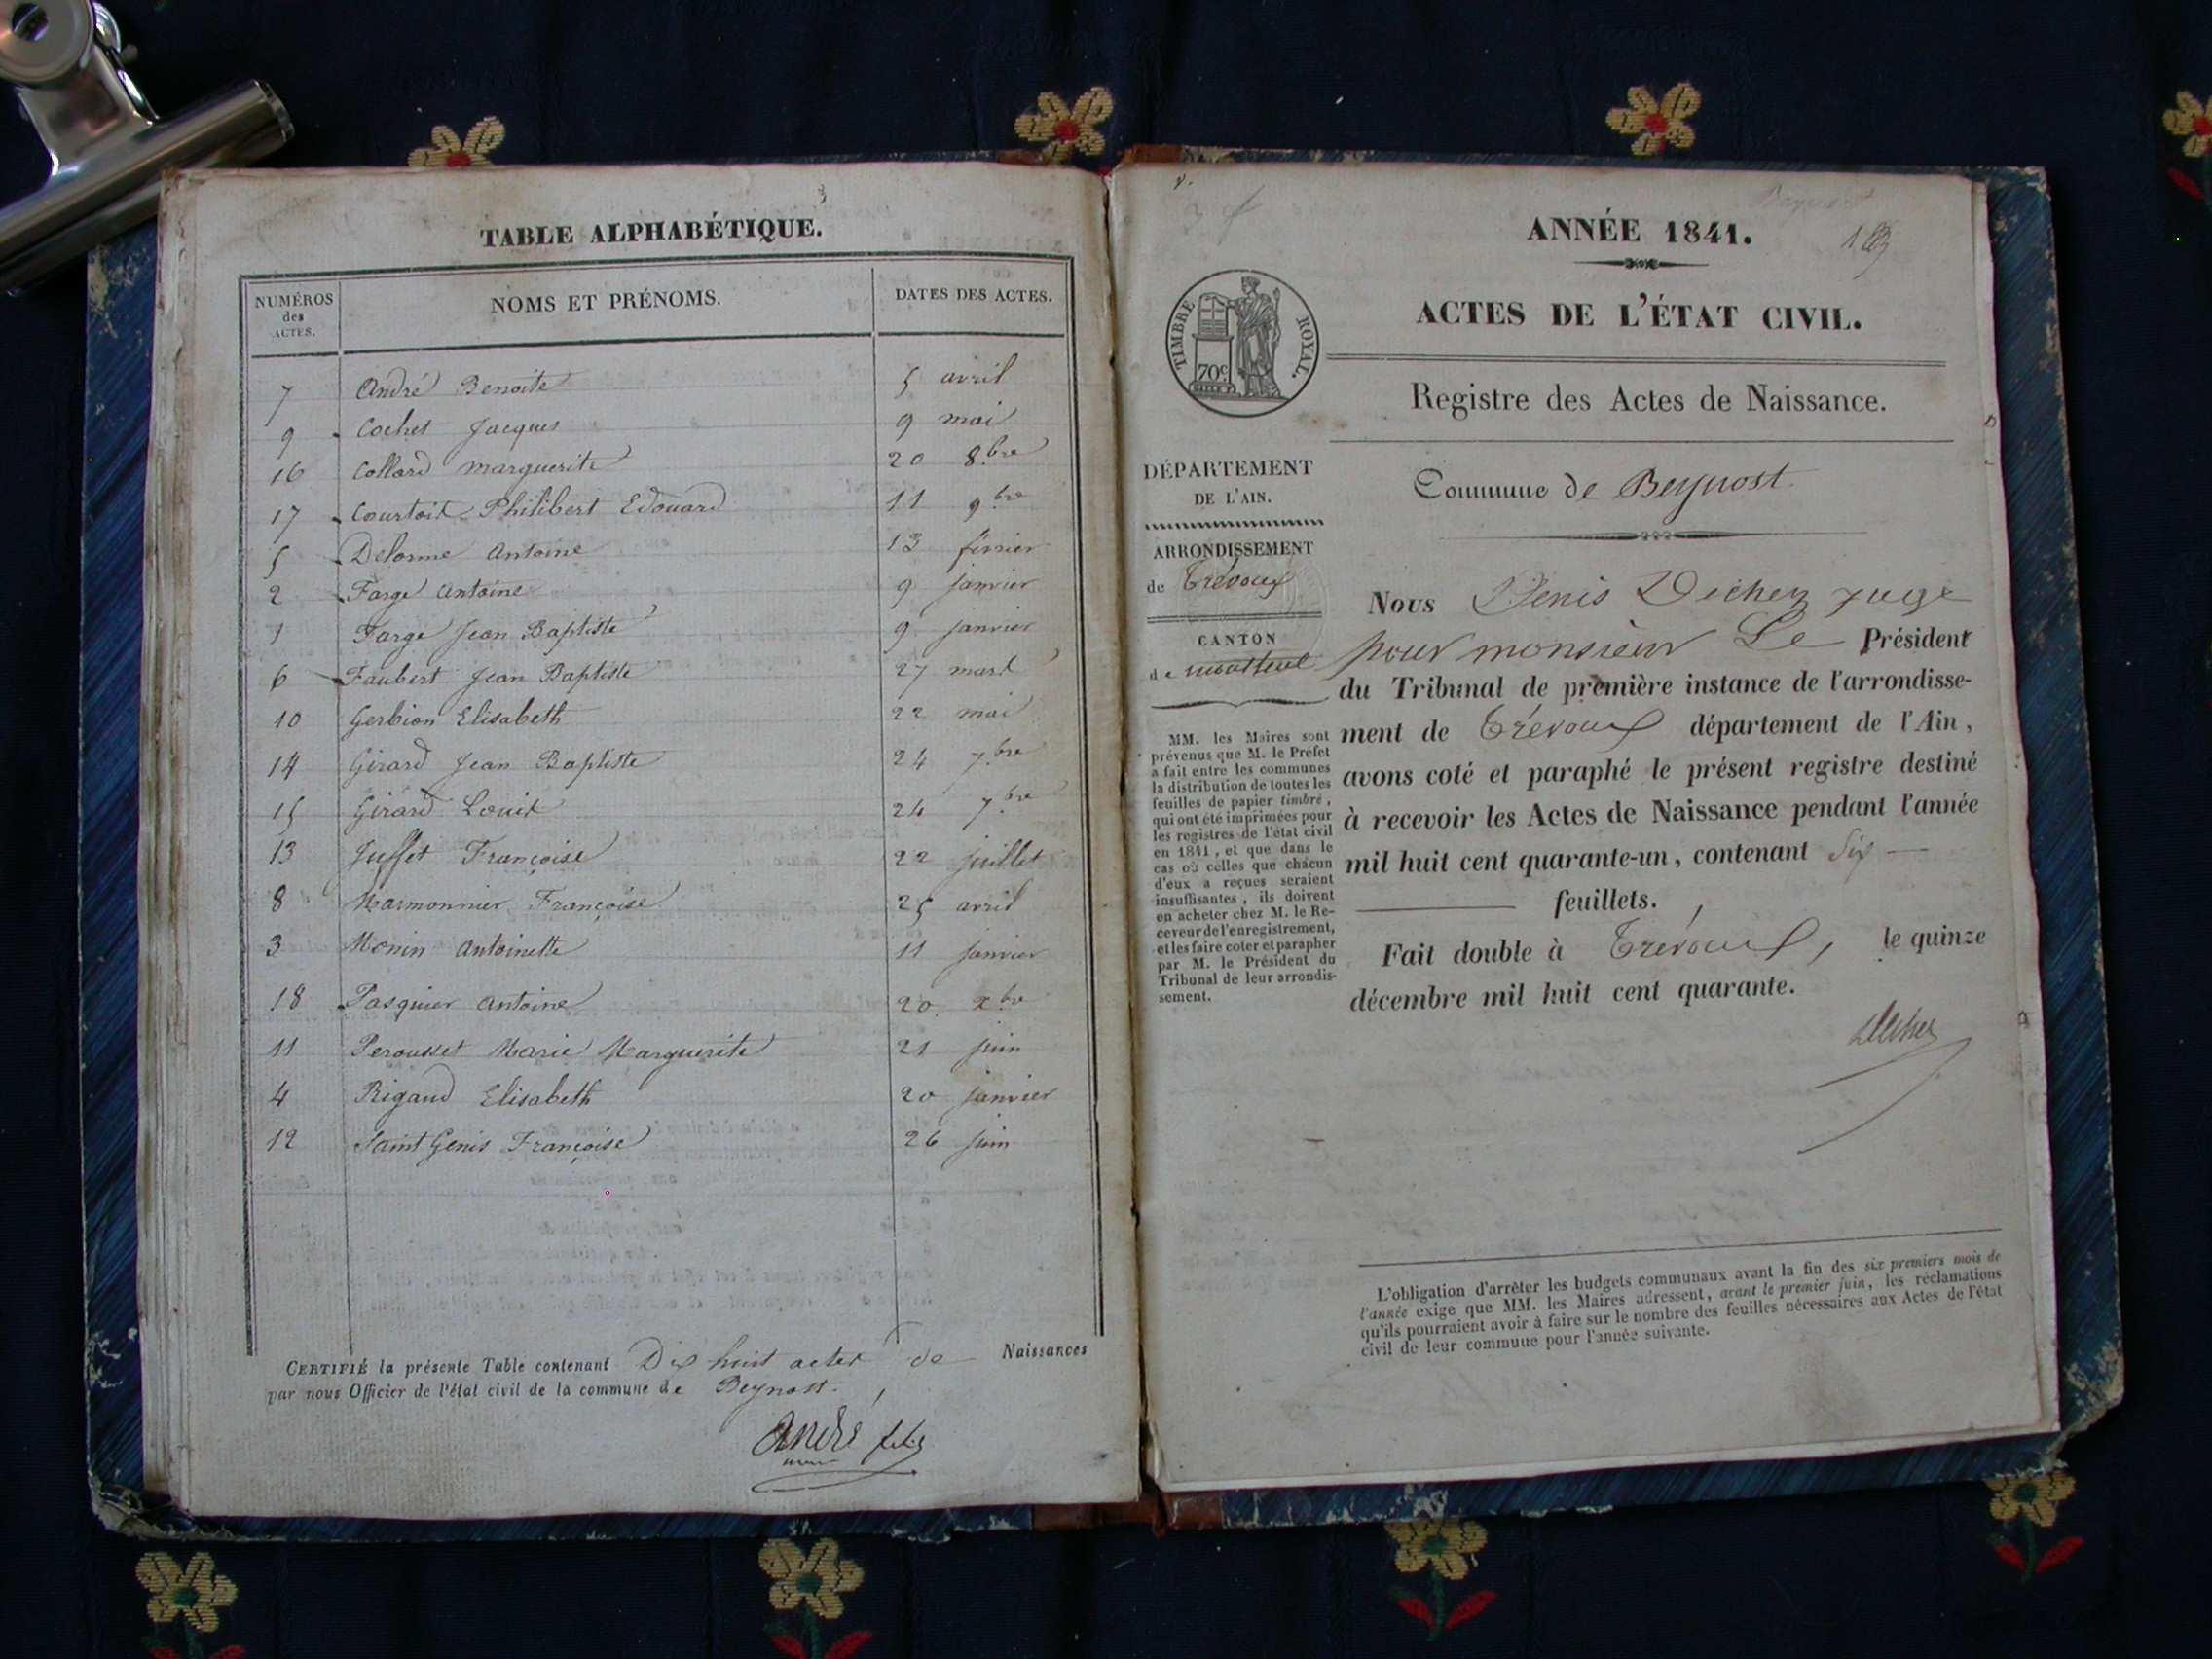 3
TABLE ALPHABÉTIQUE.
NUMÉROS des ACTES. NOMS ET PRÉNOMS. DATES DES ACTES.
7 André Benoite 5 avril
9 Cochet Jacques 9 mai
16 Collard marguerite 20 8.bre
17 Courtois Philibert Edouard 11 9bre
5 Delorme Antoine 13 février
2 Farge Antoine 9 janvier
1 Farge Jean Baptiste 9 janvier
6 Faubert Jean Baptiste 27 mars
10 Gerbion Elisabeth 22 mai
14 Girard Jean Baptiste 24 7.bre
15 Girard Louis 24 7.bre
13 Juffet Françoise 22 juillet
8 Marmonnier Françoise 25 avril
3 Monin Antoinette 11 janvier
18 Pasquier Antoine 20 xbre
11 Perousset Marie Marguerite 21 juin
4 Rigaud Elisabeth 20 janvier
12 Saint Genis Françoise 26 juin
CERTIFIÉ la présente Table contenant Dix huit actes de Naissances
par nous Officier de l'état civil de la commune de Beynost.
André
ANNÉE 1841.
ACTES DE L'ÉTAT CIVIL.
TIMBRE ROYAL.
70c
Registre des Actes de Naissance.
DÉPARTEMENT
DE L'AIN.
ARRONDISSEMENT
de Trévoux
CANTON
de montluel
MM. les Maires sont
prévenus que M. le Préfet
a fait entre les communes
la distribution de toutes les
feuilles de papier timbré,
qui ont été imprimées pour
les registres de l'état civil
en 1841, et que dans le
cas où celles que chacun
d'eux a reçues seraient
insuffisantes, ils doivent
en acheter chez M. le Re-
ceveur de l'enregistrement,
et les faire coter et parapher
par M. le Président du
Tribunal de leur arrondis-
sement.
Commune de Beynost.
Nous Denis Dicher juge
pour monsieur Le Président
du Tribunal de première instance de l'arrondisse-
ment de Trévoux département de l'Ain,
avons coté et paraphé le présent registre destiné
à recevoir les Actes de Naissance pendant l'année
mil huit cent quarante-un, contenant Six
feuillets.
Fait double à Trévoux, le quinze
décembre mil huit cent quarante.
L'obligation d'arrêter les budgets communaux avant la fin des six premiers mois de
l'année exige que MM. les Maires adressent, avant le premier juin, les réclamations
qu'ils pourraient avoir à faire sur le nombre des feuilles nécessaires aux Actes de l'état
civil de leur commune pour l'année suivante.